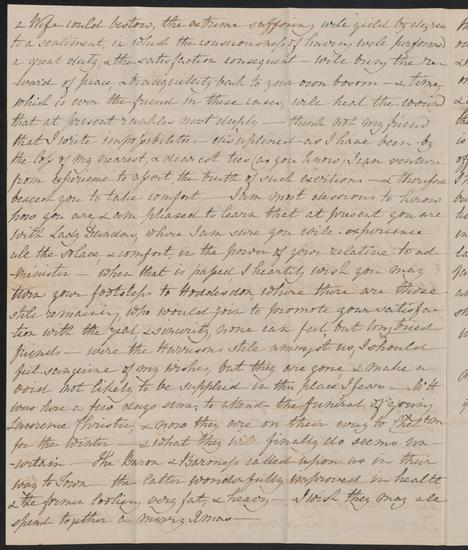 a Wife could bestow, the extreme suffering will yield by degrees
to a sentiment, in which the consciousness of having well performed
a great duty, & the satisfaction consequent - will bring the re-
ward of peace, & tranquillity back to your own bosom - & time,
which is ever the friend in these cases, will heal the wound
that at present rankles most deeply - think not my friend
that I write impossibilities - disciplined as I have been by
the loss of my nearest, & dearest ties (as you know) I can venture
from experience to assert, the truth of such exertions - & therefore
beseech you to take comfort - I am most desirous to know
how you are, & am pleased to learn that at present you are
with Lady Dundas, where I am sure you will experience
all the solace & comfort in the power of your relative to ad-
-minister - when that is passed I heartily wish you may
turn your footsteps to Hoddesdon where there are those
still remaining, who would join to promote your satisfac-
tion with the zeal & sincerity, none can feel but long tried
friends - were the Harrisons still amongst us, I should
feel sanguine of my wishes, but they are gone, & make a
void not likely to be supplied in this place I fear - Mr H
was here a few days since, to attend the funeral of young
Lawrence Christie, & now they are on their way to
for the Winter - & what they will finally do seems un-
-certain - The Baron & Baroness called upon us in their
way to Town - the latter wonderfully improved in health
& the former looking very fat, & heavy - I wish they may all
spend together a merry Xmas -